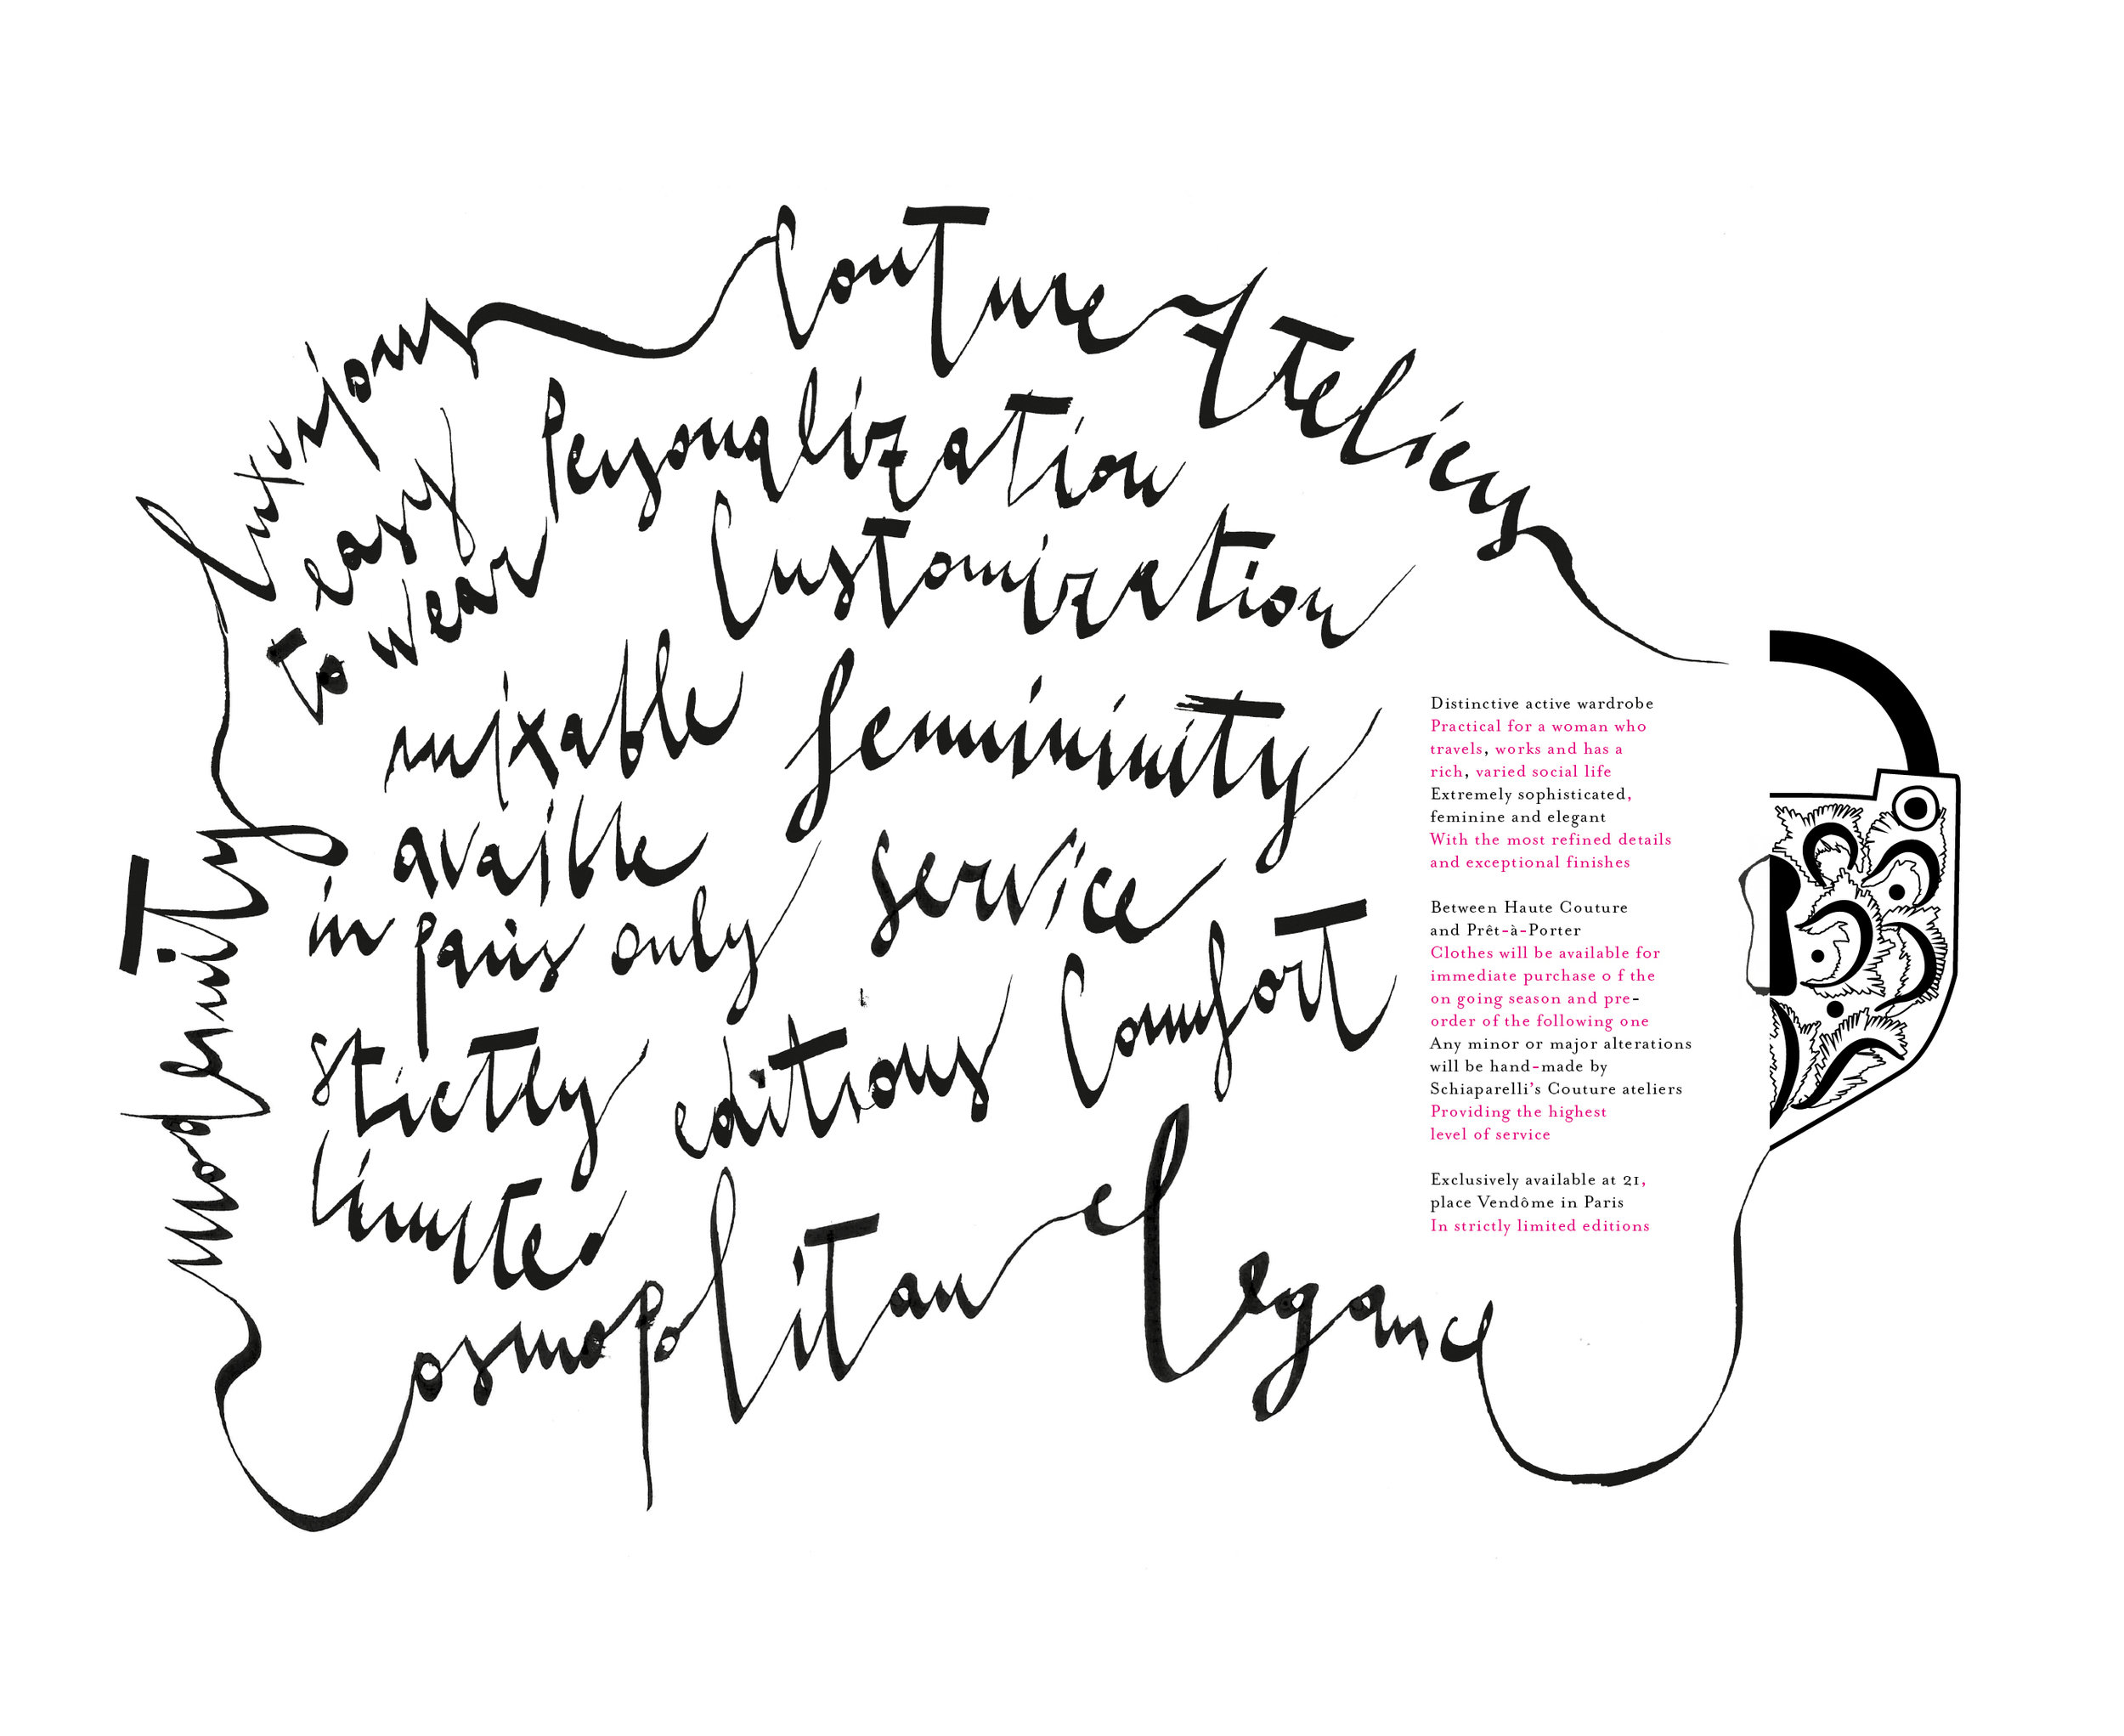 Couture Ateliers
Luxurious
easy
to wear
Personalization
Customization
mixable
femininity
availble
service
in paris only
Comfort
strictly
editions
limited
Modernity
Cosmopolitan
elegance
Distinctive active wardrobe
Practical for a woman who
travels, works and has a
rich, varied social life
Extremely sophisticated,
feminine and elegant
With the most refined details
and exceptional finishes
Between Haute Couture
and Prêt-à-Porter
Clothes will be available for
immediate purchase o f the
on going season and pre-
order of the following one
Any minor or major alterations
will be hand-made by
Schiaparelli's Couture ateliers
Providing the highest
level of service
Exclusively available at 21,
place Vendôme in Paris
In strictly limited editions